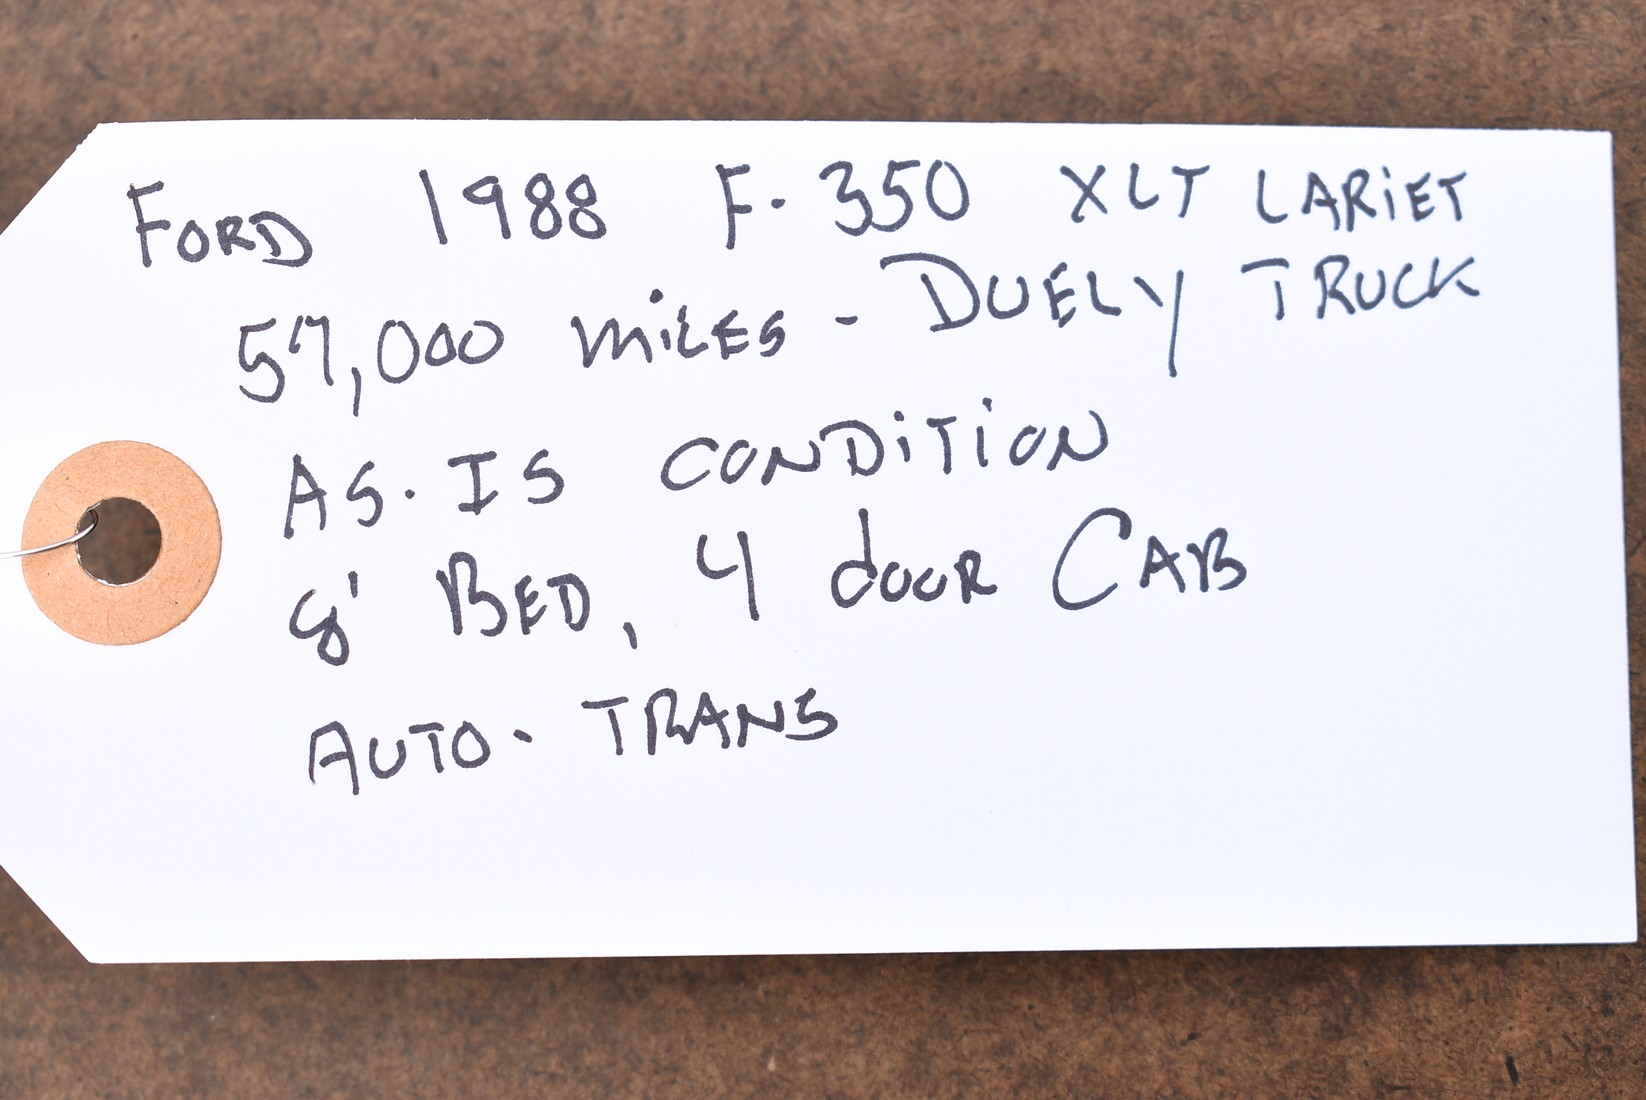 FORD 1988 F-350 XLT LARiET
57,000 miLES - DUELY TRUCK
AS-IS CONDiTiON
8' BED, 4 dOOR CAB
AUTO- TRANS